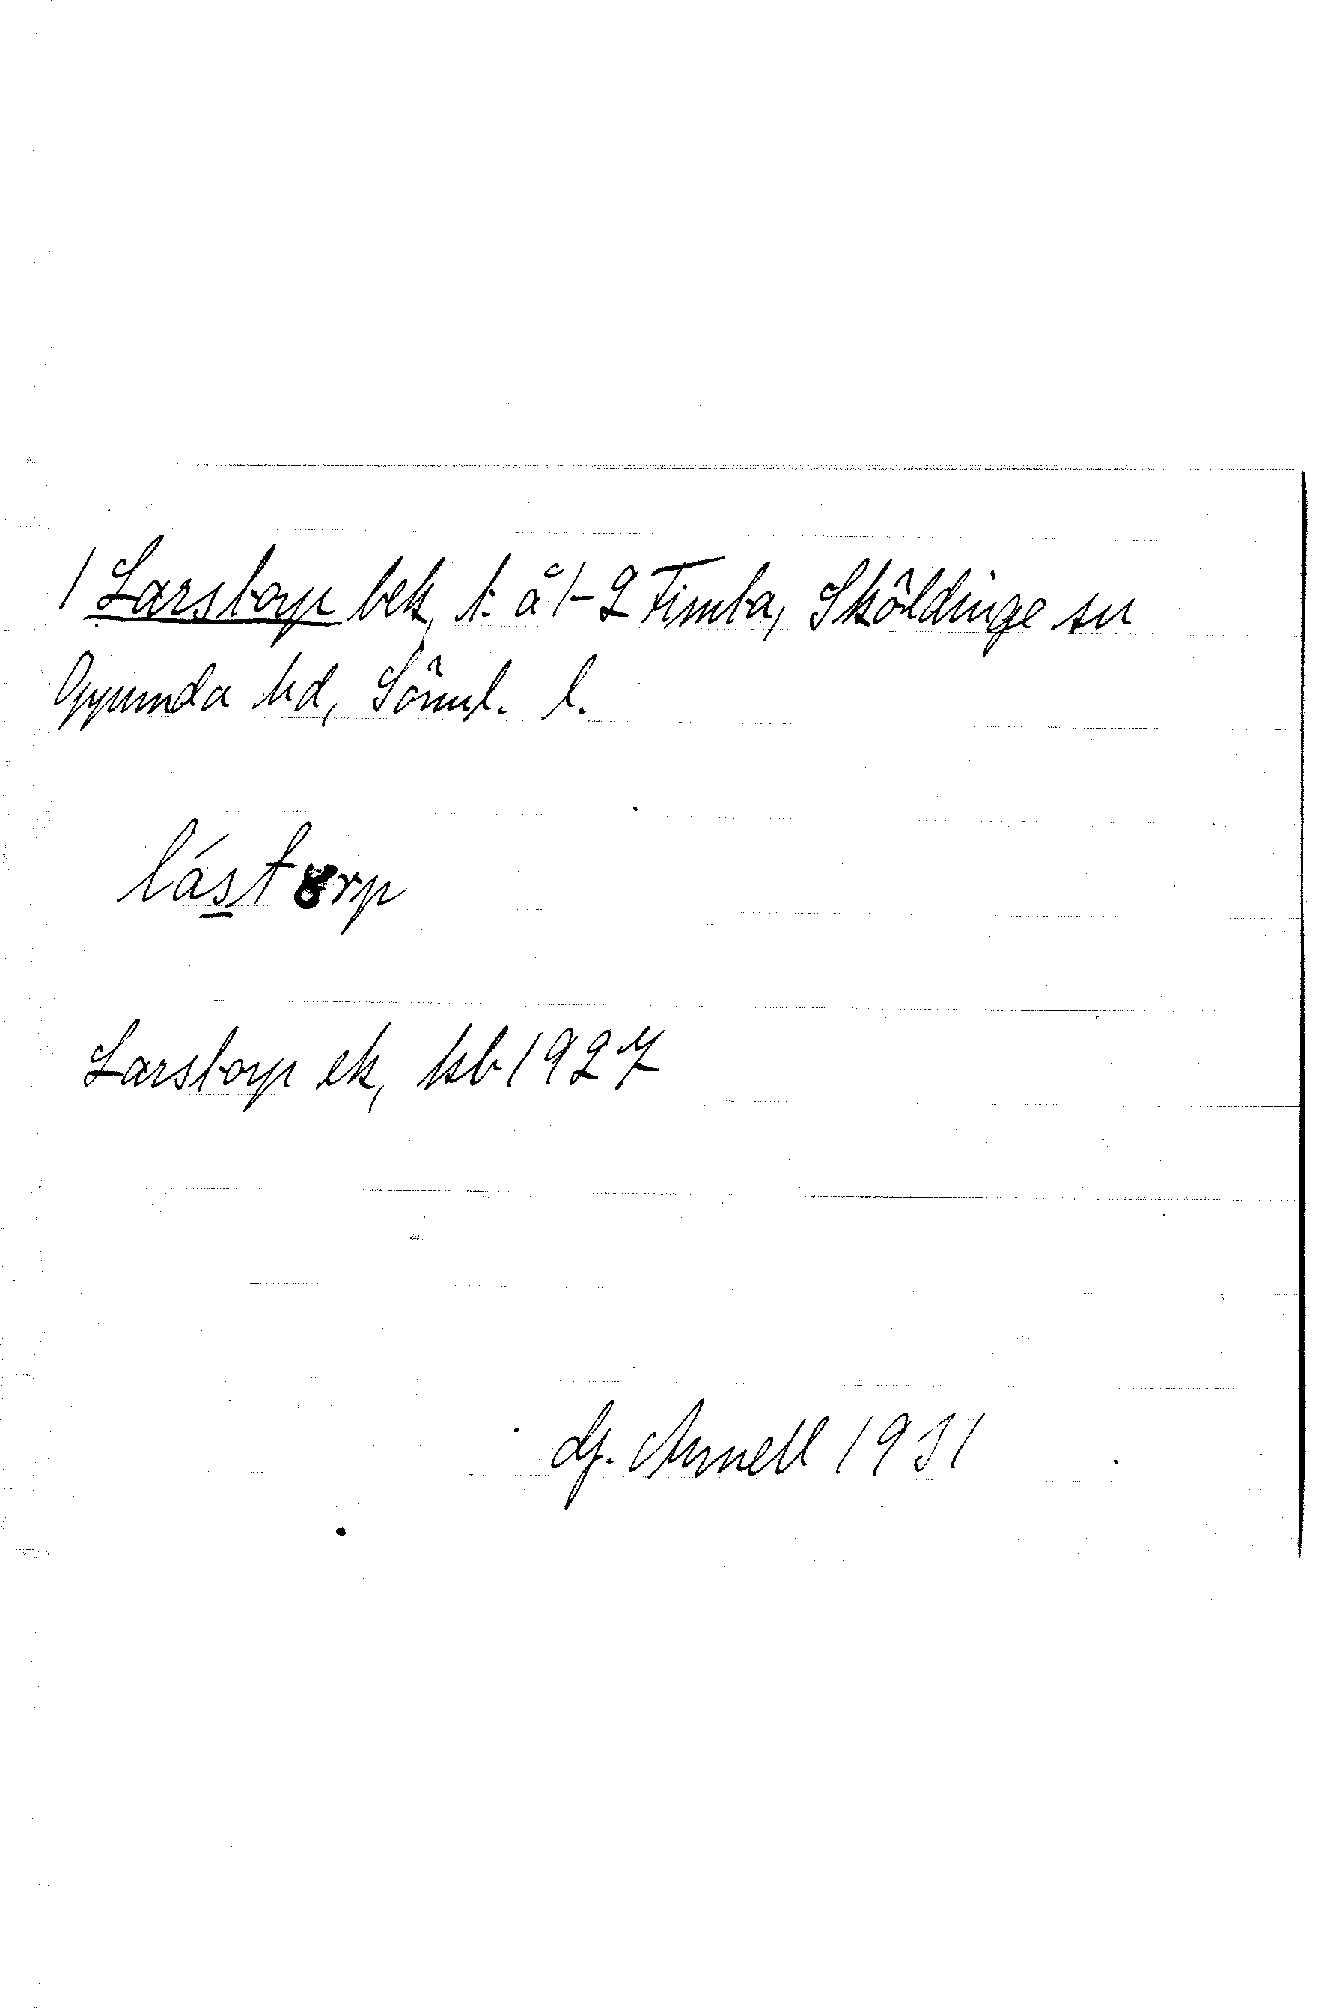 1 Larstorp bek, t. å 1-2 Timta, Sköldinge sn
Oppunda hd, Söml. l.
lást orp
Larstorp ek, kb 1927
Df. Arnell 1931